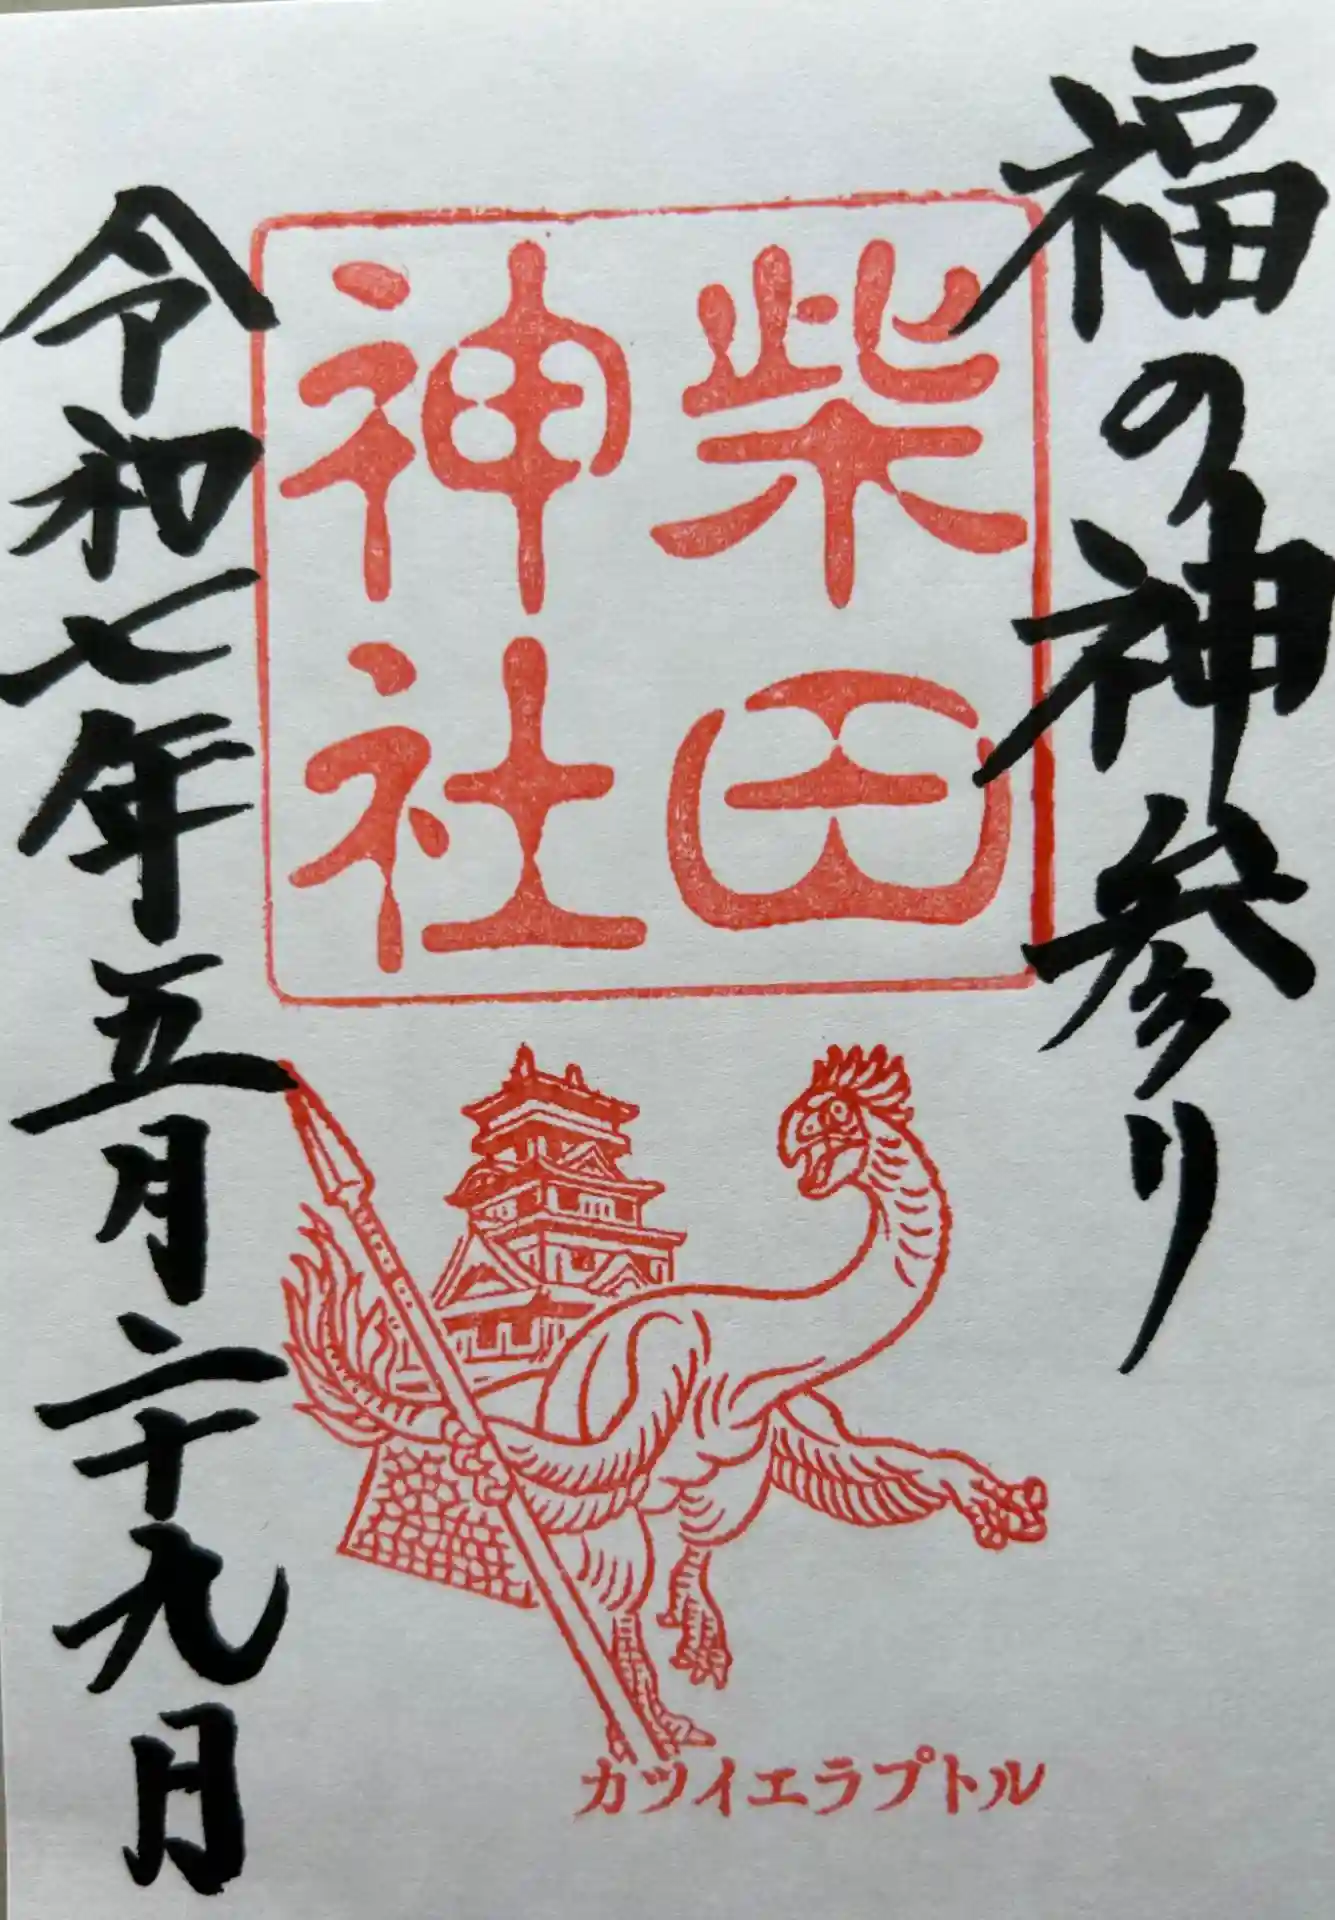 福の神参り
柴田
神社
カツイエラプトル
令和七年五月二十九日